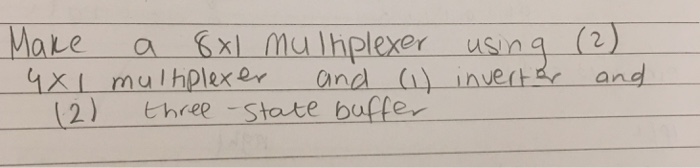 Make a 8x1 multiplexer using (2)
4x1 multiplexer and (1) inverter and
(2) three-state buffer